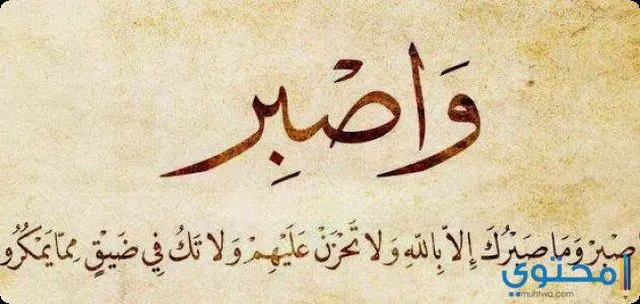 وَاصْبِر
صْبِرْ وَمَا صَبْرُكَ إِلاَّ بِاللَّهِ وَلاَ تَحْزَنْ عَلَيْهِمْ وَلاَ تَكُ فِي ضَيْقٍ مِمَّا يَمْكُرُو
محتوى
www.muhtwa.com